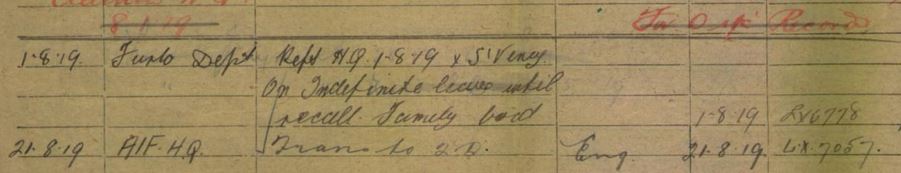 8.1.19
Records
1.8.19 Furlo Dept Rept H.Q. 1.8.19 x S'Veney.
On Indefinite leave until
recall. Family boat 1.8.19 LX6778
21.8.19 AIF. H.Q. Trans to 2.D. Eng. 21.8.19 LX.7057.